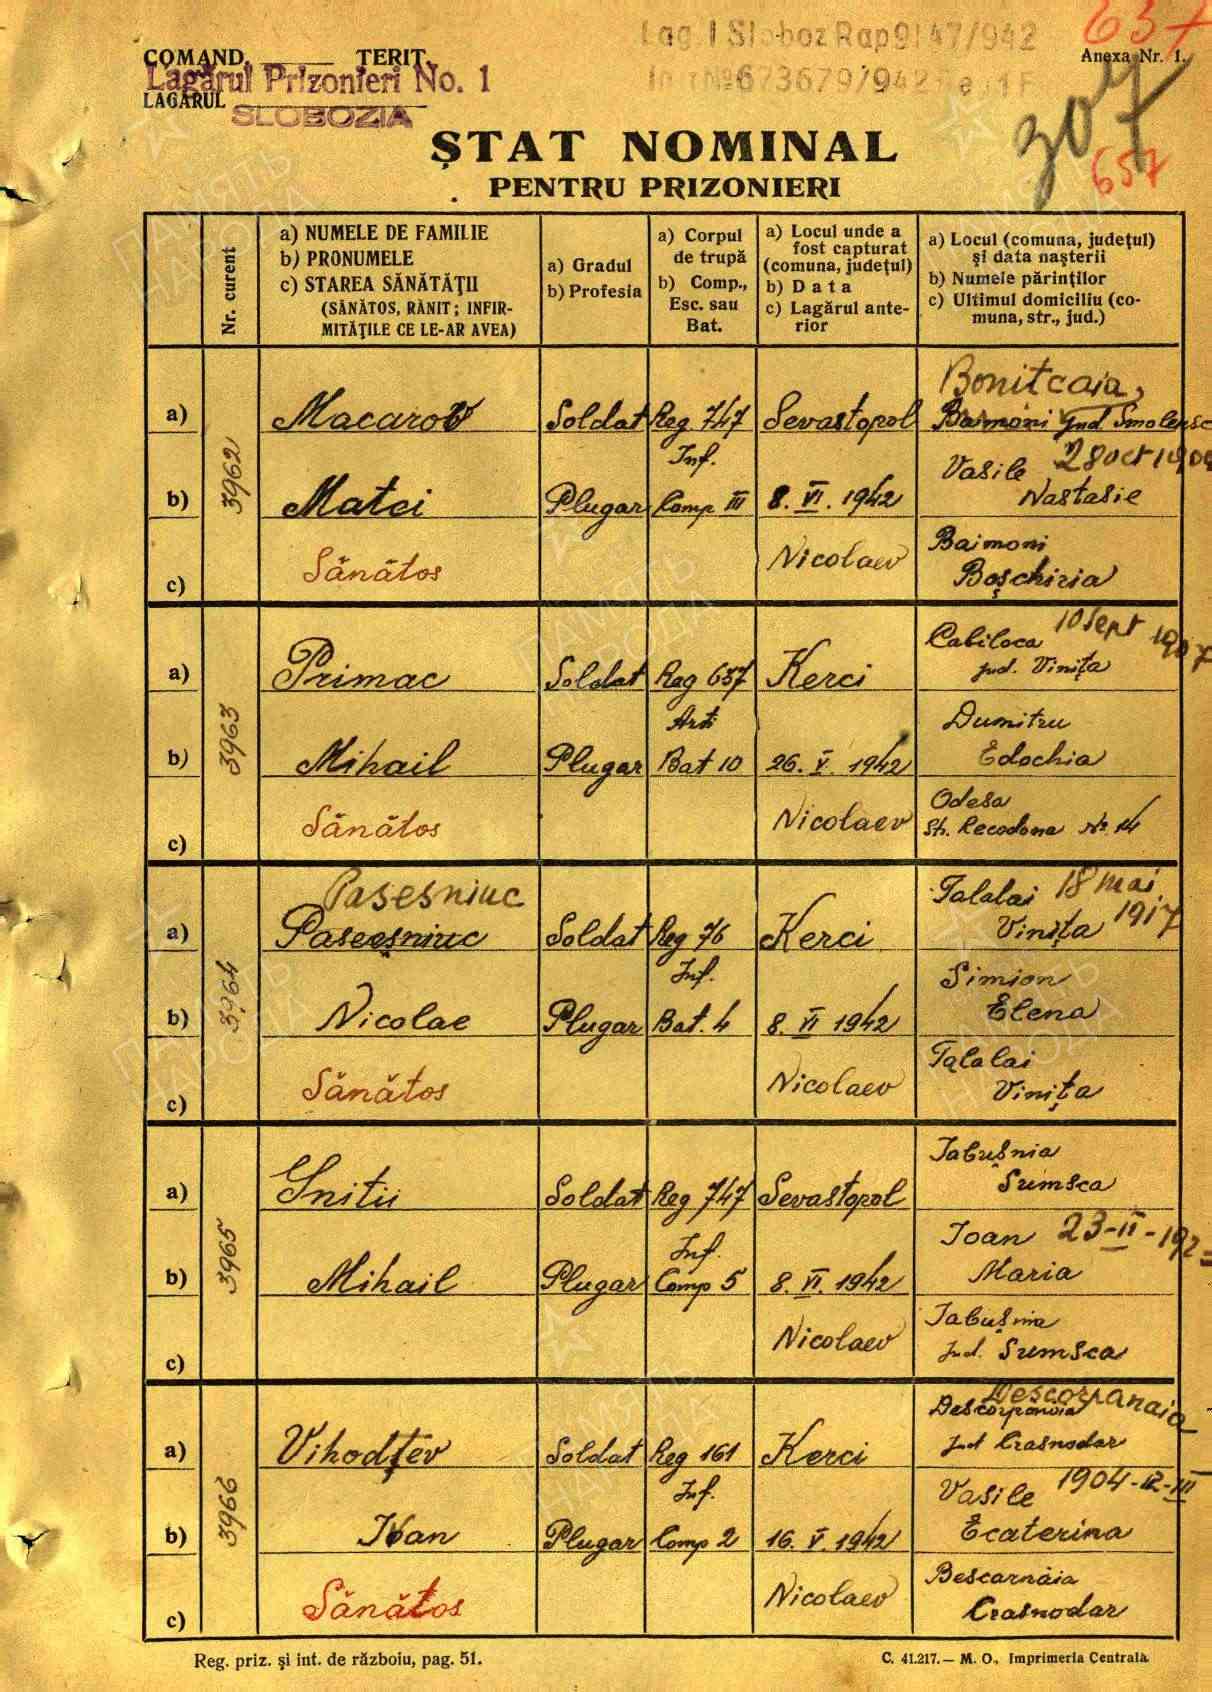 637
Lag. I Sloboz Rap 9147/942
COMAND. TERIT.
Anexa Nr. 1.
Lagărul Prizonieri No. 1
673679/942
LAGĂRUL
SLOBOZIA
307
ȘTAT NOMINAL
657
PENTRU PRIZONIERI
Nr. curent
a) NUMELE DE FAMILIE
b) PRONUMELE
c) STAREA SĂNĂTĂȚII
(SĂNĂTOS, RĂNIT; INFIR-
MITĂȚILE CE LE-AR AVEA)
a) Gradul
b) Profesia
a) Corpul
de trupă
b) Comp.,
Esc. sau
Bat.
a) Locul unde a
fost capturat
(comuna, județul)
b) Data
c) Lagărul ante-
rior
a) Locul (comuna, județul)
și data nașterii
b) Numele părinților
c) Ultimul domiciliu (co-
muna, str., jud.)
3962
a) Macarov Soldat Reg 747 Sevastopol Bonitcaia,
Baimoni jud. Smolensc
Inf. Vasile 28 oct 190
b) Matei Plugar Comp III 8. VI. 1942 Nastasie
c) Sănătos Nicolaev Baimoni
Boșchiria
3963
a) Primac Soldat Reg 637 Kerci Cabiloca 10 Sept 1907
jud. Vinița
Arti Dumitru
b) Mihail Plugar Bat 10 26. V. 1942 Edochia
c) Sănătos Nicolaev Odesa
Str. Recodona No. 14
3964
Pasesniuc
a) Paseșniuc Soldat Reg 76 Kerci Talalai 18 mai
Vinița 1917
Inf. Simion
b) Nicolae Plugar Bat. 4 8. VI 1942 Elena
c) Sănătos Nicolaev Talalai
Vinița
3965
a) Gnitii Soldat Reg 747 Sevastopol Iabușnia
Sumsca
Inf. Ioan 23-II-192
b) Mihail Plugar Comp 5 8. VI. 1942 Maria
c) Nicolaev Iabușnia
Jud. Sumsca
3966
Descorpanaia
a) Vihodțev Soldat Reg 161 Kerci Descorpanaia
Jud Crasnodar
Inf. Vasile 1904-IX-III
b) Ivan Plugar Comp 2 16. V. 1942 Ecaterina
c) Sănătos Nicolaev Bescarnaia
Crasnodar
Reg. priz. și int. de războiu, pag. 51.
C. 41.217.— M. O., Imprimeria Centrală
ПАМЯТЬ
НАРОДА
ПАМЯТЬ
НАРОДА
ПАМЯТЬ
НАРОДА
ПАМЯТЬ
НАРОДА
ПАМЯТЬ
НАРОДА
ПАМЯТЬ
НАРОДА